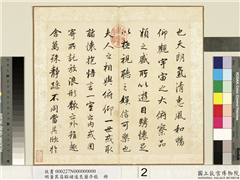 也天朗氣清惠風和暢
仰觀宇宙之大俯察品
類之盛所以遊目騁懷足
以極視聽之娛信可樂也
夫人之相與俯仰一世或取
諸懷抱悟言一室之內或因
寄所託放浪形骸之外雖趣
舍萬殊靜躁不同當其欣於
故書000227N000000000
明董其昌臨褚遂良蘭亭敘 冊
2
國立故宮博物院